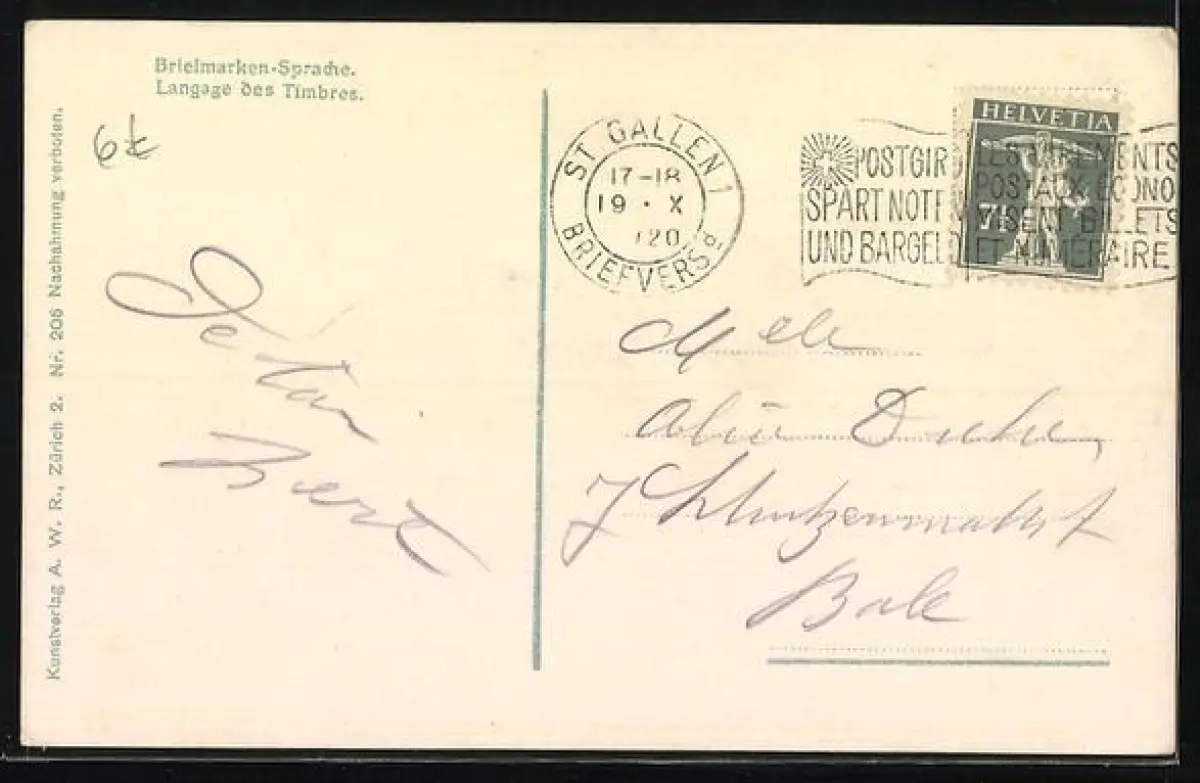 Briefmarken-Sprache.
Langage des Timbres.
6
Kunstverlag A. W. R., Zürich 2. Nr. 206 Nachahmung verboten.
ST. GALLEN 1
17-18
19 · X
20
BRIEFVERSd
POSTGIR
SPART NOTE
UND BARGELD
LES VIREMENTS
POSTAUX ECONO
MISENT BILLETS
ET NUMERAIRE
HELVETIA
7½
Melle
Schutzenmattst
Bale